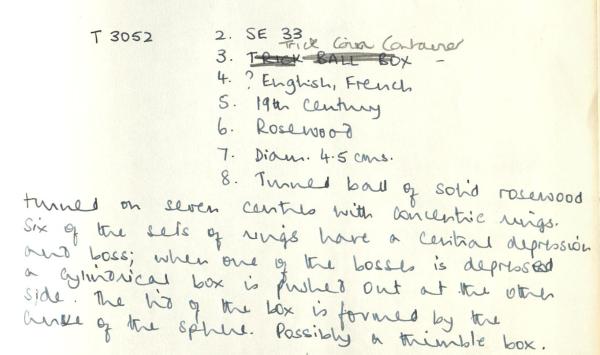 T 3052 2. SE 33
Trick Coin Container
3. TRICK BALL BOX -
4. ? English, French
5. 19th Century
6. Rosewood
7. Diam. 4.5 cms.
8. Turned ball of solid rosewood
turned on seven centres with concentric rings.
Six of the sets of rings have a central depression
and boss; when one of the bosses is depressed
a cylindrical box is pushed out at the other
side. The lid of the box is formed by the
curve of the sphere. Possibly a thimble box.